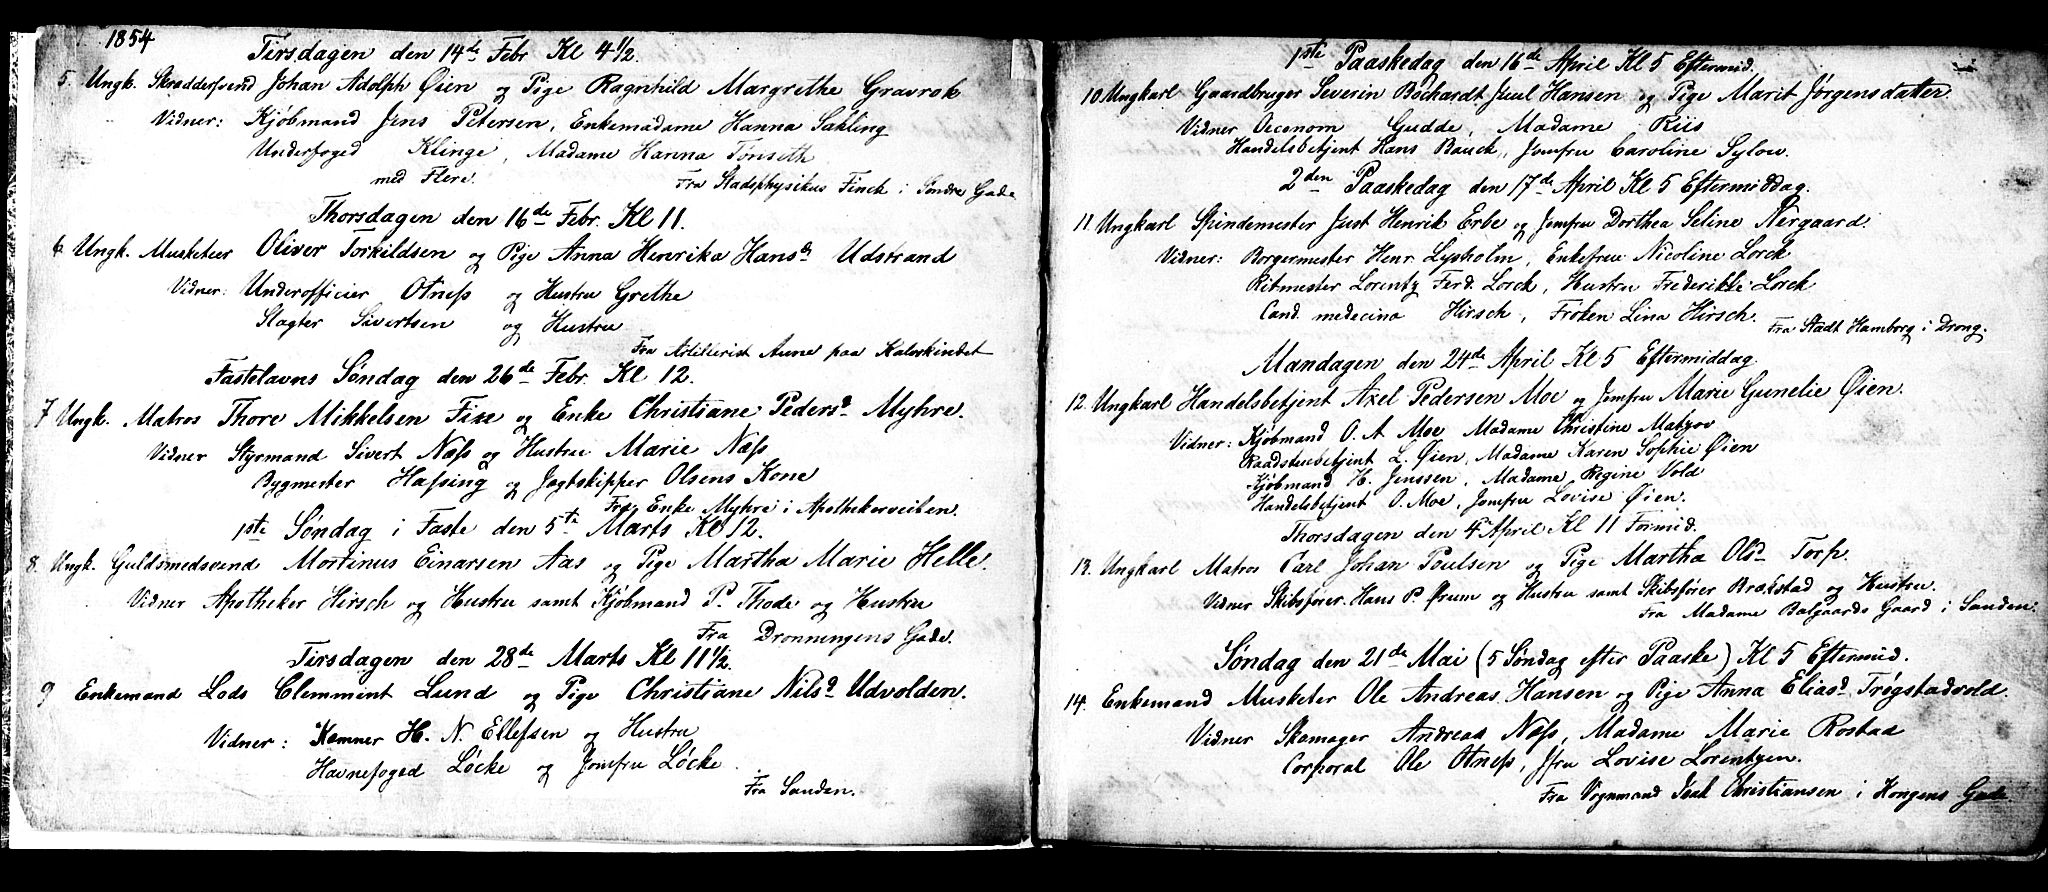 1854
Tirsdagen den 14de Febr Kl 4½.
5. Ungk. Skrædderfvend Johan Adolph Øien og Pige Ragnhild Margrethe Gravrok
Vidner: Kjøbmand Jens Petersen, Enkemadame Hanna Sahling
Underfoged Klinge, Madame Hanna Tønseth
med Flere.
Fra Stadsphysikus Finck i Søndre Gade
Thorsdagen den 16de Febr. Kl 11.
6 Ungk. Musketeer Oliver Torkildsen og Pige Anna Henrika Hansd. Udstrand
Vidner: Underofficier Otness og Hustru Grethe
Slagter Sivertsen og Hustru
Fra Artillerist Aune paa Kalvskindet
Fastelavns Søndag den 26de Febr. Kl 12.
7 Ungk. Matros Thore Mikkelsen og Enke Christiane Pedersd. Myhre.
Vidner Styrmand Sivert Næss og Hustru Marie Næss
Bygmester Hassing og Jagtskipper Olsens Kone
Fra Enke Myhre i Apothekerveiten.
1ste Søndag i Faste den 5te Marts Kl 12.
8. Ungk. Guldsmedsvend Mortinus Einarsen Aas og Pige Martha Marie Helle.
Vidner Apotheker Hirsch og Hustru samt Kjøbmand P. Thode og Hustru
Fra Dronningens Gade.
Tirsdagen den 28de Marts Kl 11½.
9 Enkemand Lods Clemmint Lund og Pige Christiane Nilsd. Udvolden.
Vidner: Kemner H. N. Ellefsen og Hustru
Havnefoged Løcke og Jomfru Løcke.
Fra Sanden.
1ste Paaskedag den 16de April Kl 5 Eftermid.
10 Ungkarl Gaardbruger Severin Bochardt Juul Hansen og Pige Marit Jørgensdatter.
Vidner Oeconom Gudde, Madame Riis
Handelsbetjent Hans Bauck, Jomfru Caroline Sylow.
2den Paaskedag den 17de April Kl 5 Eftermiddag.
11. Ungkarl Spindemester Just Henrik Erbe og Jomfru Dorthea Seline Nergaard.
Vidner: Borgermester Henr. Lysholm, Enkefrue Nicoline Lorck
Ritmester Lorentz Ferd. Lorck, Hustru Frederikke Lorck
Cand. medecina Hirsch, Frøken Lina Hirsch.
Fra Stadt Hamborg i Drong.
Mandagen den 24de April Kl 5 Eftermiddag.
12. Ungkarl Handelsbetjent Axel Pedersen Moe og Jomfru Marie Gunelie Øien.
Vidner: Kjøbmand O. A. Moe Madame Christine Matzov
Raadstuebetjent L. Øien, Madame Karen Sophie Øien
Kjøbmand H. Jenssen, Madame Regine Vold
Handelsbetjent O. Moe, Jomfru Lovise Øien.
Thorsdagen den 4de April Kl 11 Formid.
13. Ungkarl Matros Carl Johan Poulsen og Pige Martha Olsd. Torp.
Vidner Skibsfører Hans P. Ørum og Hustru samt Skibsfører Brækstad og Hustru.
Fra Madame Balgaards Gaard i Sanden.
Søndag den 21de Mai (5 Søndag efter Paaske) Kl 5 Eftermid.
14. Enkemand Musketer Ole Andreas Hansen og Pige Anna Eliasd. Trøgstadvold.
Vidner Skomager Andreas Næss, Madame Marie Rostad
Corporal Ole Otness, Jfru Lovise Lorentzen.
Fra Vognmand Isak Christiansen i Kongens Gade